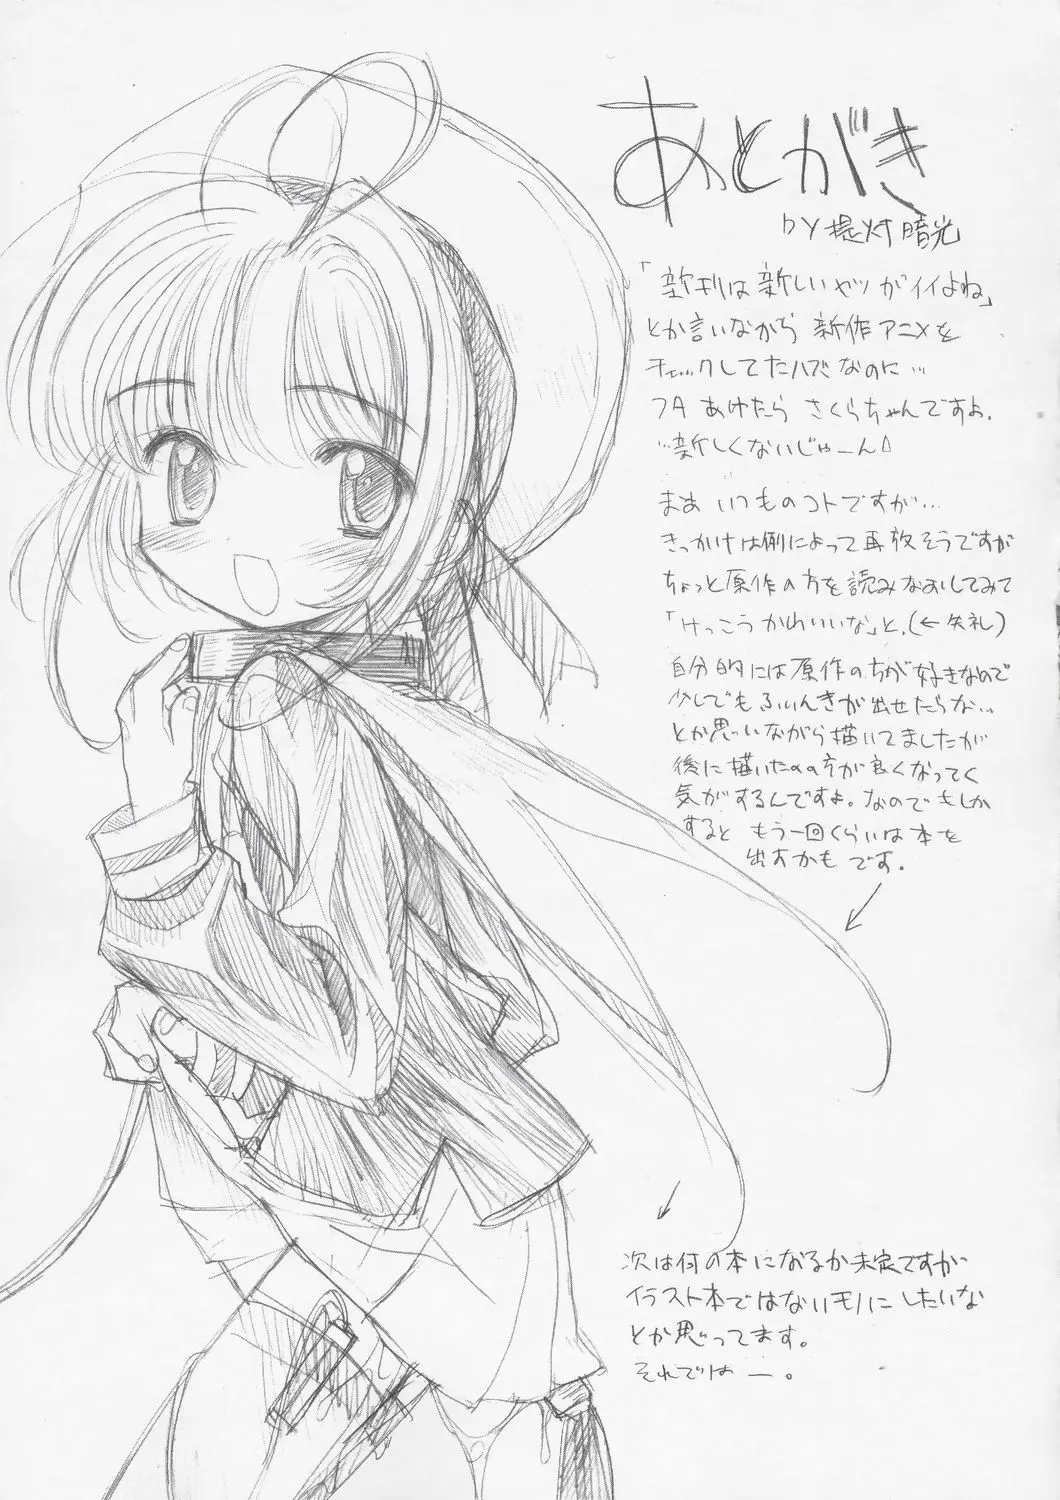 あとがき
by 提灯暗光
「新刊は新しいヤツがイイよね」
とか言いながら 新作アニメを
チェックしてたハズなのに…
フタ あけたら さくらちゃんですよ.
…新しくないじゃーん
まあ いつものコトですが…
きっかけは例によって再放そうですが
ちょっと原作の方を読みなおしてみて
「けっこうかわいいな」と.(←失礼)
自分的には原作のちが好きなので
少しでもふいんきが出せたらな…
とか思いながら描いてましたが
後に描いたのの方が良くなってく
気がするんですよ。なのでもしか
すると もう一回くらいは本を
出すかも です.
次は何の本になるか未定ですが
イラスト本ではないモノにしたいな
とか思ってます。
それでは ー 。